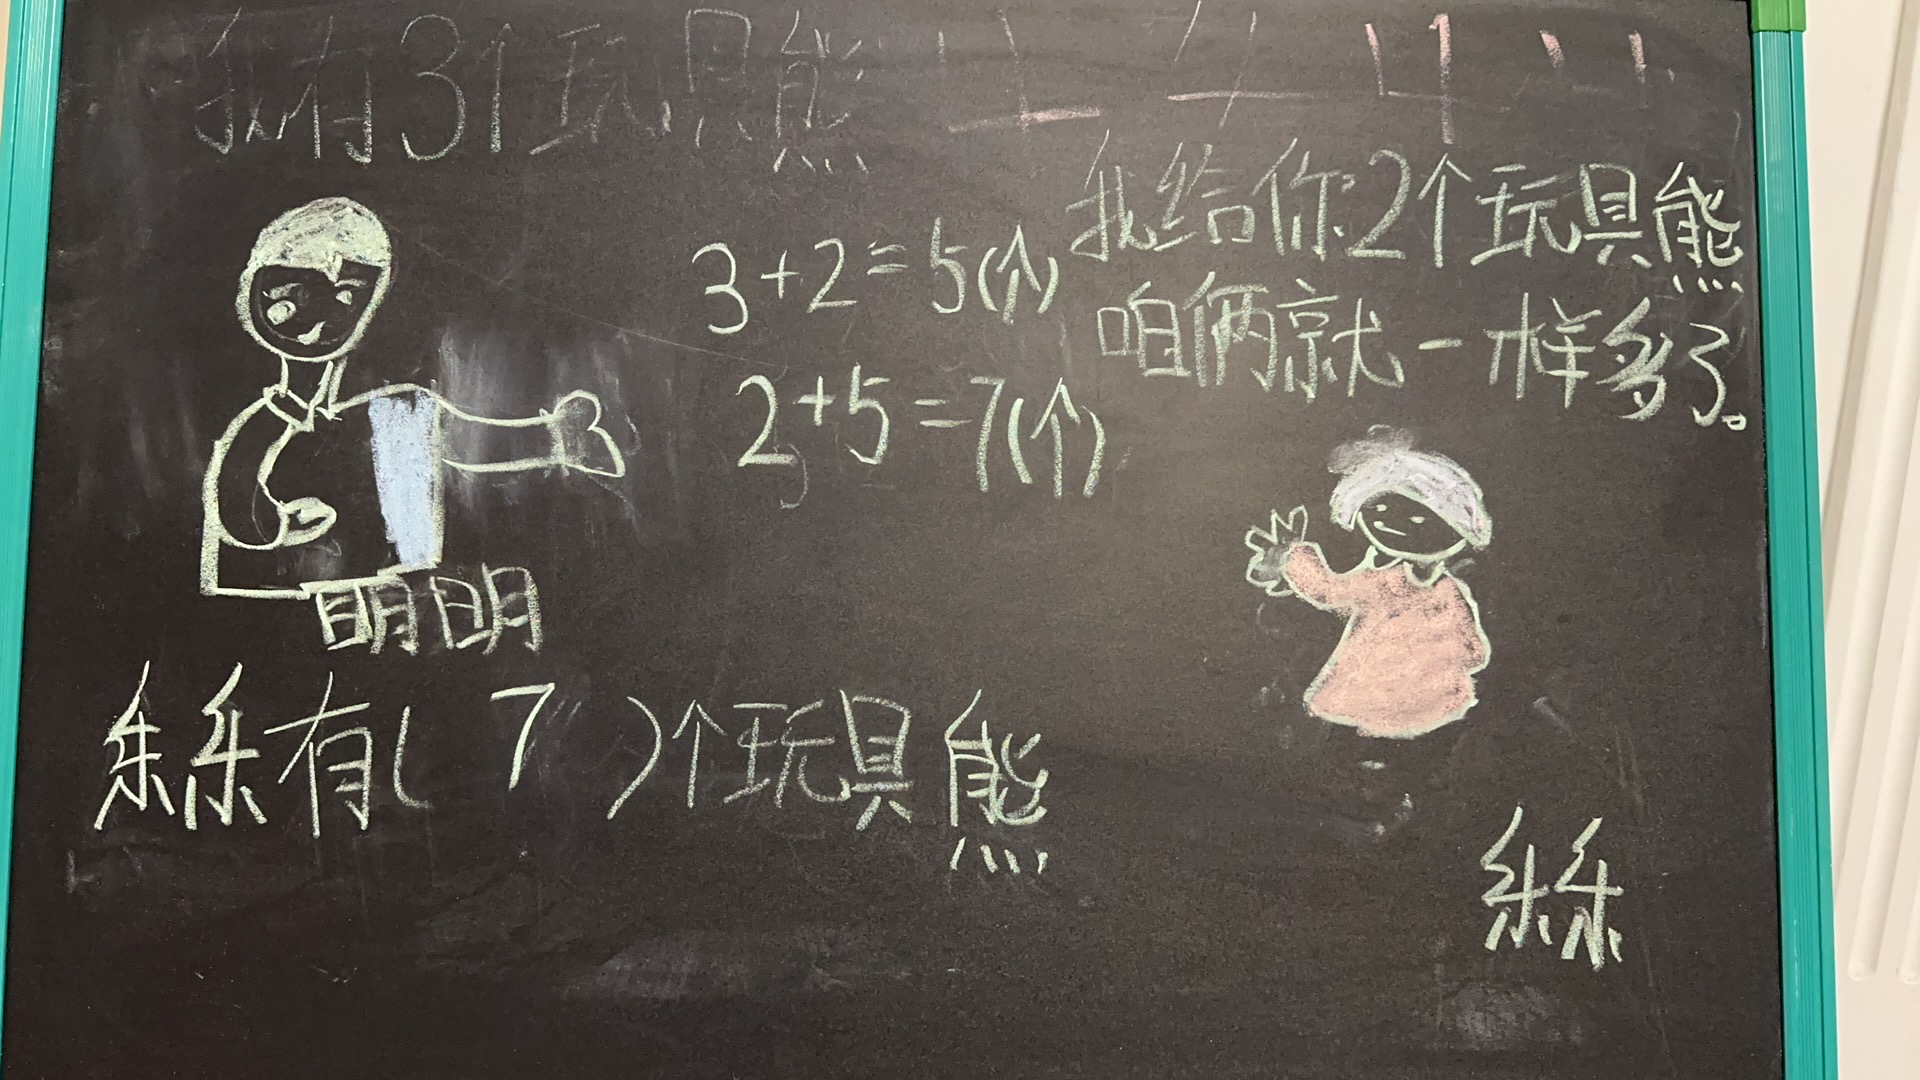 我有3个玩具熊
我给你2个玩具熊
咱俩就一样多了。
3+2=5(个)
2+5=7(个)
明明
乐乐有( 7 )个玩具熊
乐乐